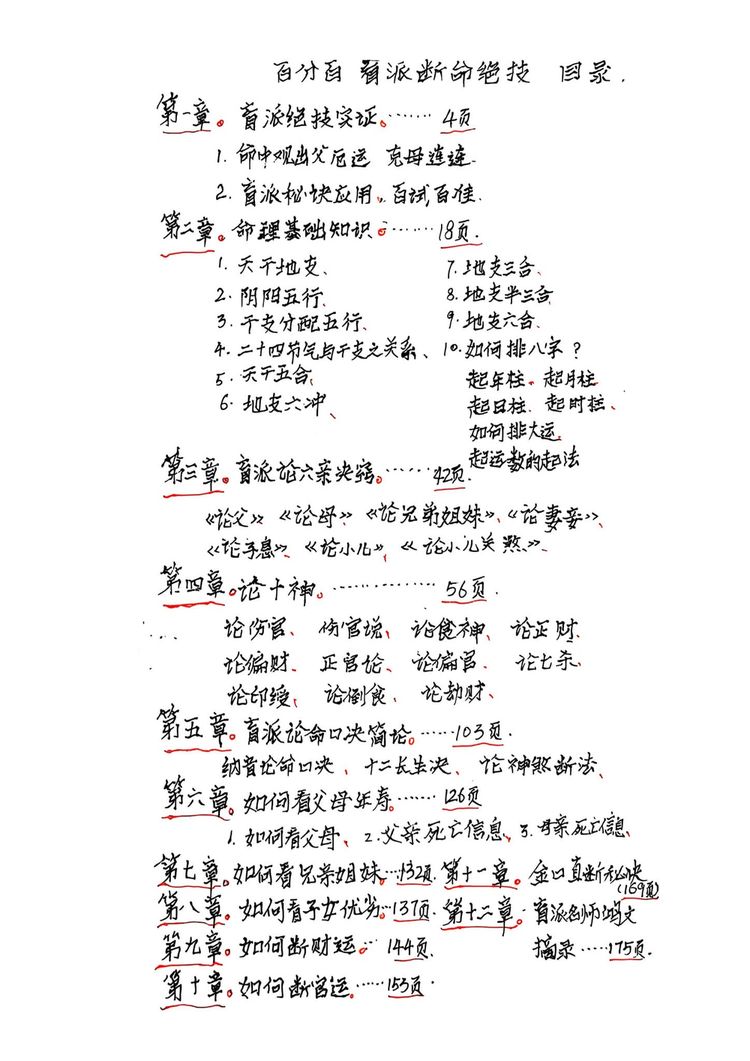 百分百 盲派断命绝技 目录.
第一章。盲派绝技实证。…… 4页
1. 命中观出父厄运 克母连连.
2. 盲派秘诀应用、百试百准.
第二章。命理基础知识。…… 18页.
1. 天干地支、 7. 地支三合、
2. 阴阳五行、 8. 地支半三合、
3. 干支分配五行、 9. 地支六合、
4. 二十四节气与干支之关系、 10. 如何排八字?
5. 天干五合、 起年柱、起月柱
6. 地支六冲、 起日柱、起时柱、
如何排大运、
起运数的起法
第三章。盲派论六亲决窍。…… 42页.
《论父》、《论母》、《论兄弟姐妹》、《论妻妾》、
《论子息》、《论小儿》、《论小儿关煞》、
第四章。论十神。………… 56页.
论伤官、 伤官说、 论食神、 论正财、
论偏财、 正官论、 论偏官、 论七杀、
论印绶、 论倒食、 论劫财、
第五章。盲派论命口决简论。…… 103页.
纳音论命口决、十二长生决、论神煞断法、
第六章。如何看父母年寿。…… 126页
1. 如何看父母、2. 父亲死亡信息、3. 母亲死亡信息、
第七章。如何看兄亲姐妹…132页. 第十一章。金口直断秘诀
(169页)
第八章。如何看子女优劣。…137页. 第十二章。盲派名师鸿文
第九章。如何断财运。… 144页. 摘录……175页.
第十章。如何断官运。…… 153页.